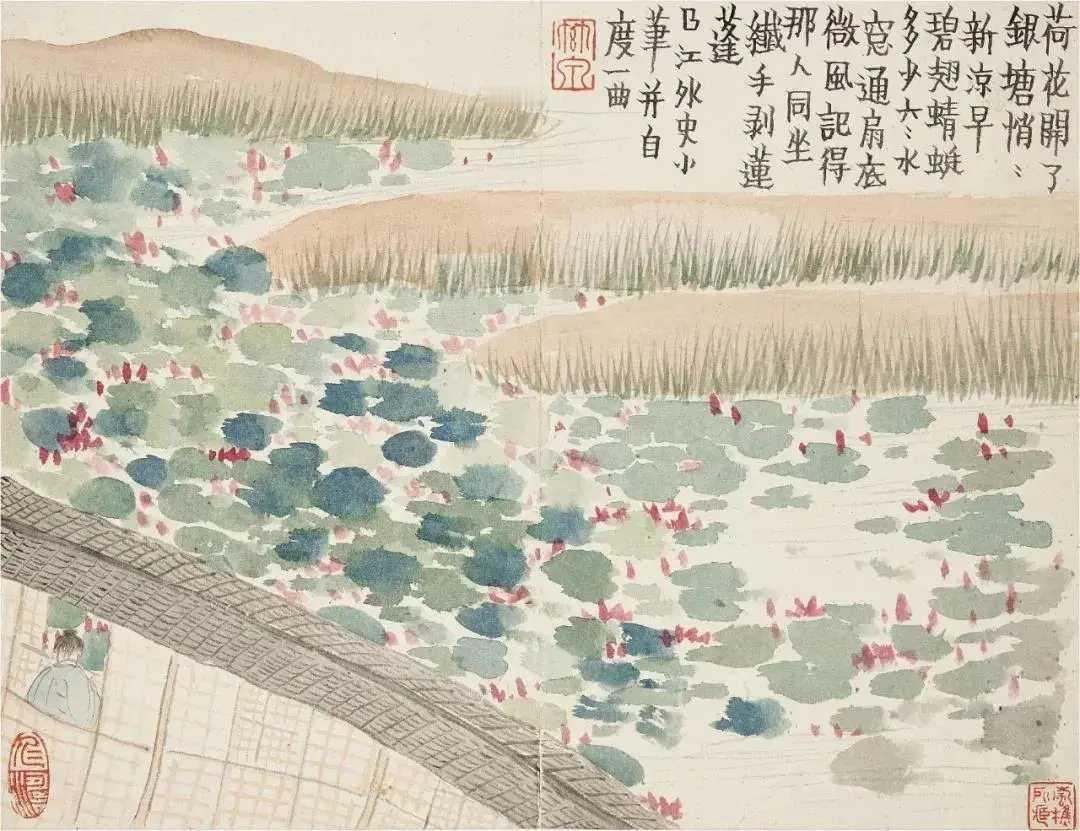 荷花開了
銀塘悄〻
新涼早
碧翅蜻蜓
多少六〻水
窓通扇底
微風記得
那人同坐
纖手剥蓮
蓬
曲江外史小
筆并自
度一曲